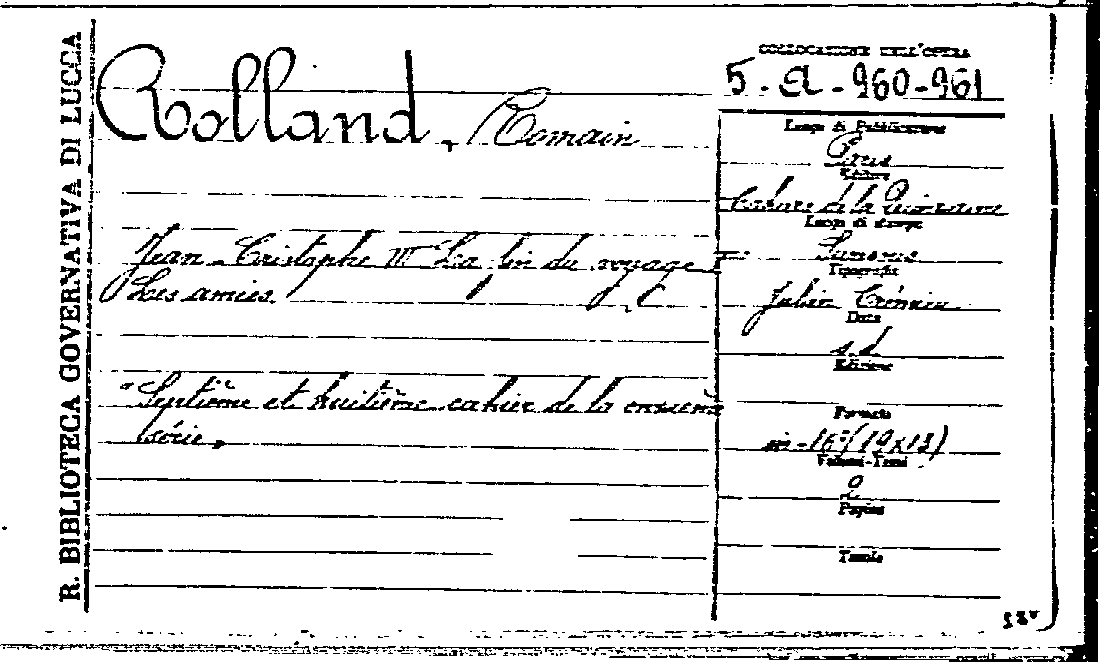 R. BIBLIOTECA GOVERNATIVA DI LUCCA
Rolland, Romain
Jean-Cristophe III La fin du voyage I
Les amies.
"Septième et huitième cahier de la onzième
série"
COLLOCAZIONE DELL'OPERA
5. a - 960-961
Luogo di Pubblicazione
Paris
Editore
Cahiers de la Quinzaine
Luogo di stampa
Suresnes
Tipografia
Julien Crémieu
Data
s.d.
Edizione
Formato
in-16° (19x13)
Volumi-Tomi
2
Pagine
Tavole